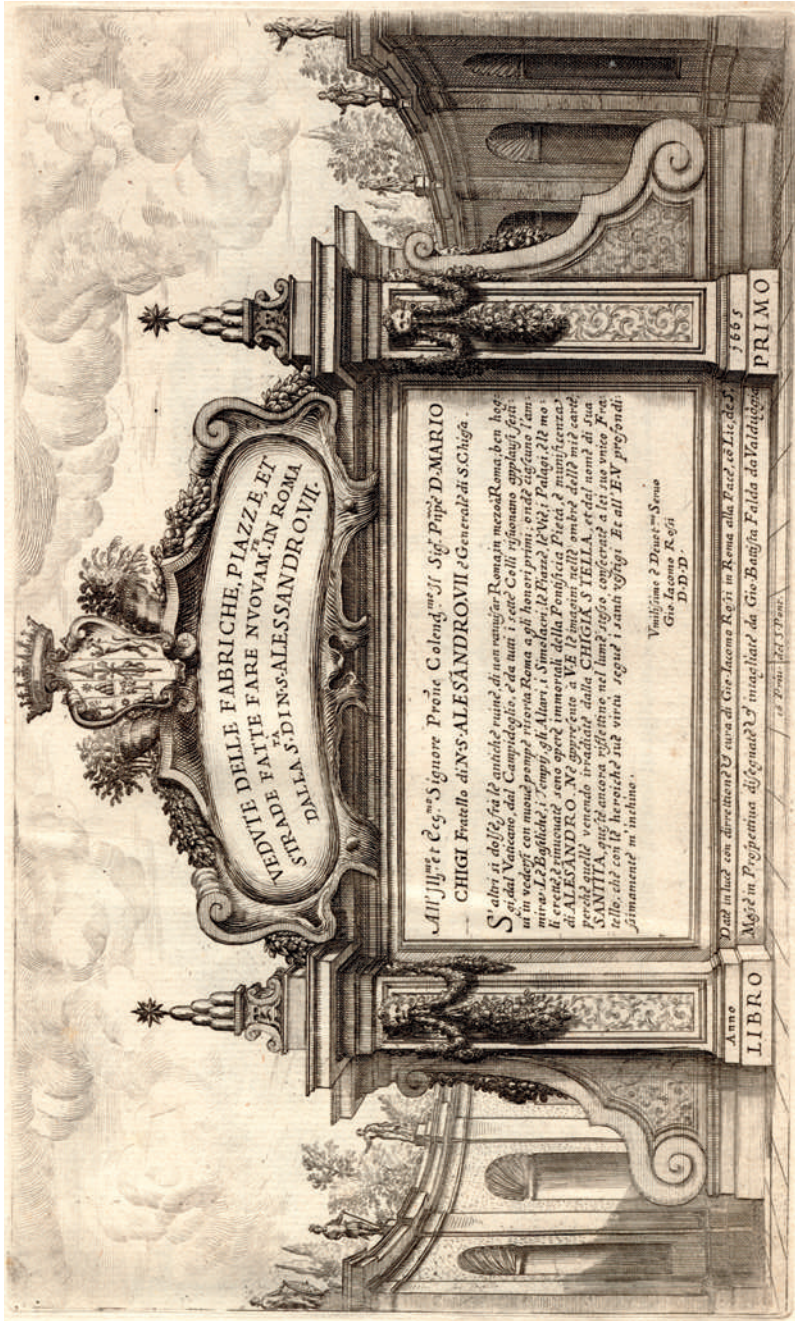 VEDVTE DELLE FABRICHE, PIAZZE, ET
STRADE FATTE FARE NVOVAM.TE IN ROMA
DALLA S.TA DI N.S. ALESSANDRO VII.
All' Ill.mo et Ecc.mo Signore Prone Colend.mo Il Sig. Pnpe D. MARIO
CHIGI Fratello di N.S. ALESANDRO VII e Generale di S. Chiesa.
S' altri si dolse, frà le antiche ruine, di non rauuisar Roma, in mezo à Roma; ben hog:
gi, dal Vaticano, dal Campidoglio, e da tutti i sette Colli risuonano applausi festi:
ui in vedersi con nuoue pompe risorta Roma a gli honori primi: onde ciascuno l'am:
mira: Le Basiliche, i Tempij, gli Altari, i Simolacri, le Piazze, le Vie, i Palagi, e le mo:
li erette, e rinuouate sono opere immortali della Pontificia Pietà, e munificenza
di ALESANDRO. Ne appresento à V.E. le imagini nelle ombre delle mie carte,
perche quelle venendo irradiate dalla CHIGIA STELLA, et dal nome di Sua
SANTITA, queste ancora riflettino nel lume stesso, consecrate a lei suo vnico Fra:
tello, che con le heroiche sue virtu segue i santi vestigi Et all' E.V profondi:
ssimamente m'inchino.
Vmilissimo e Deuot.mo Seruo
Gio. Iacomo Rossi
D.D.D.
Anno
1665
Date in luce con direttione & cura di Gio. Iacomo Rossi in Roma alla Pace, cō Lic. de S.
LIBRO
PRIMO
Messe in Prospettiua disegnate & intagliate da Gio. Battista Falda da Valduggia
cō Priu. del S. Pont.